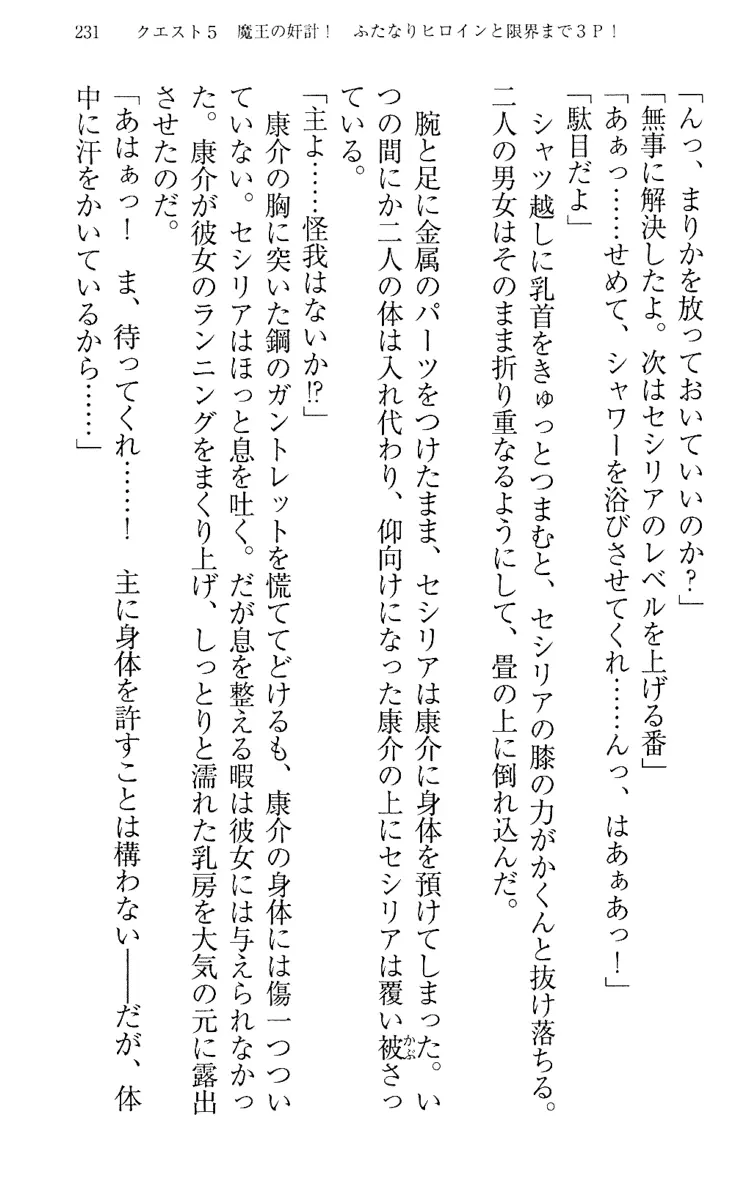 231　クエスト５　魔王の奸計！　ふたなりヒロインと限界まで３Ｐ！
「んっ、まりかを放っておいていいのか？」
「無事に解決したよ。次はセシリアのレベルを上げる番」
「あぁっ……せめて、シャワーを浴びさせてくれ……んっ、はあぁあっ！」
「駄目だよ」
　シャツ越しに乳首をきゅっとつまむと、セシリアの膝の力がかくんと抜け落ちる。
二人の男女はそのまま折り重なるようにして、畳の上に倒れ込んだ。
　腕と足に金属のパーツをつけたまま、セシリアは康介に身体を預けてしまった。い
つの間にか二人の体は入れ代わり、仰向けになった康介の上にセシリアは覆い被かぶさっ
ている。
「主よ……怪我はないか!?」
　康介の胸に突いた鋼のガントレットを慌ててどけるも、康介の身体には傷一つつい
ていない。セシリアはほっと息を吐く。だが息を整える暇は彼女には与えられなかっ
た。康介が彼女のランニングをまくり上げ、しっとりと濡れた乳房を大気の元に露出
させたのだ。
「あはぁっ！　ま、待ってくれ……！　主に身体を許すことは構わない――だが、体
中に汗をかいているから……」